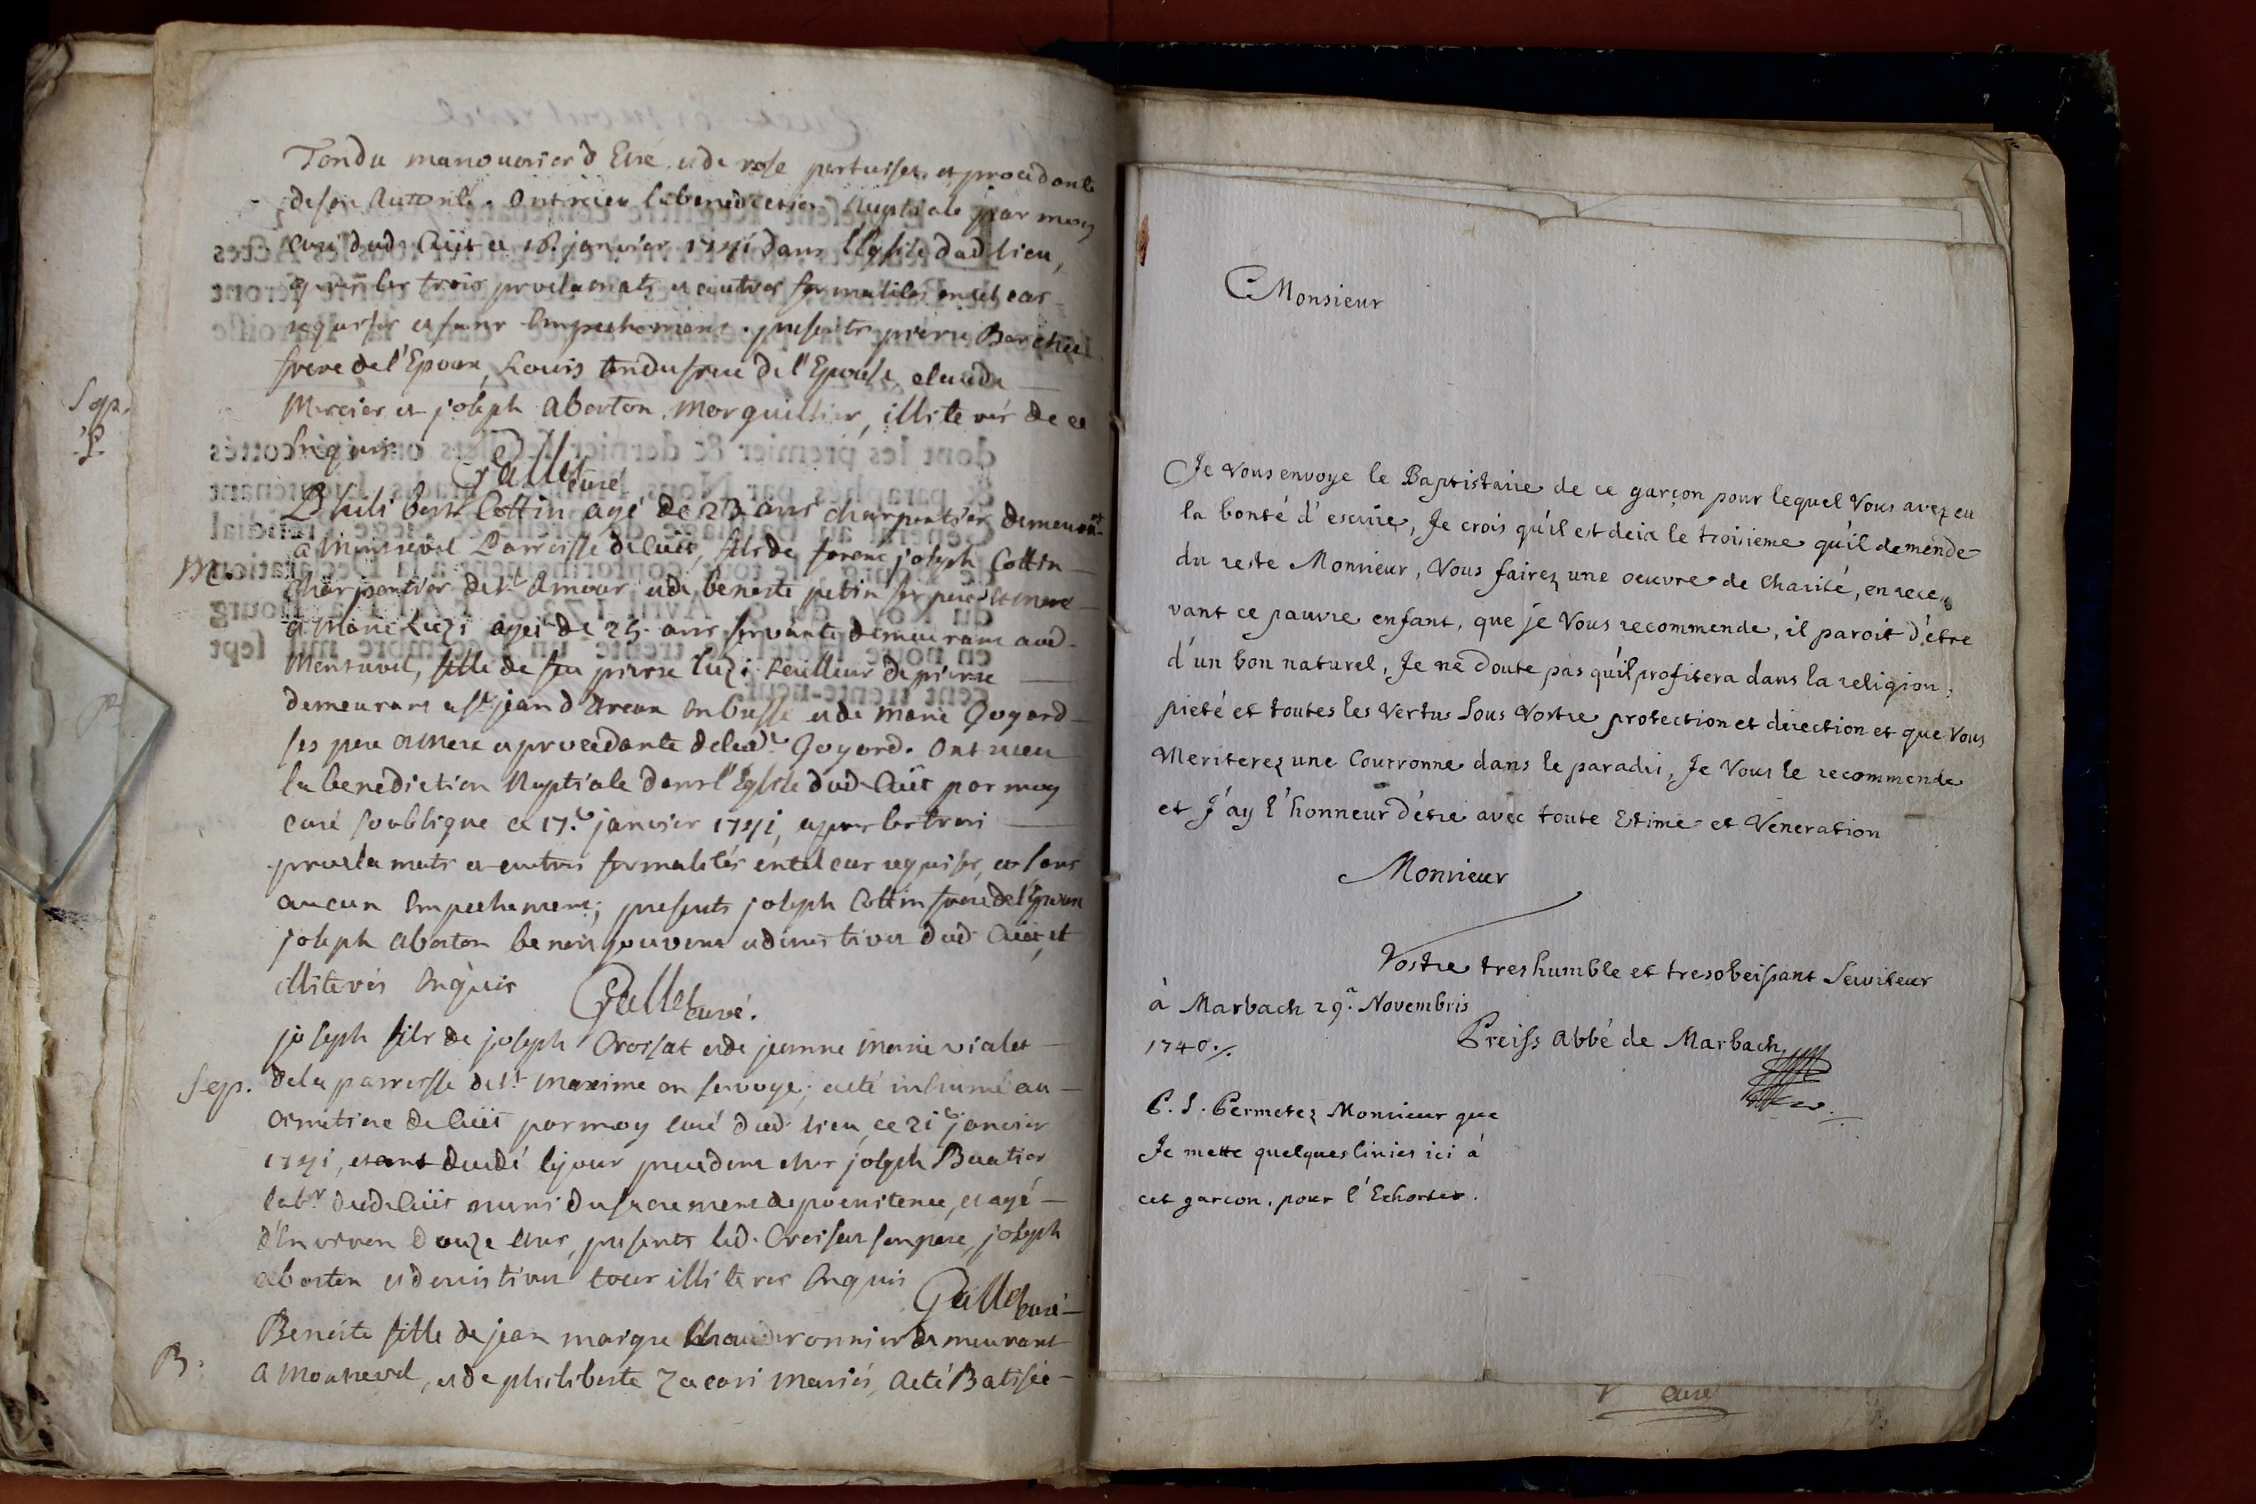 Tondu manouvrier d Etré, et de rose pertuiset, et procedante
de son Autorité. Ont recu la benediction Nuptiale par moy
Curé dud. Cuët ce 16e janvier 1741 dans l'Eglise dud. lieu,
les trois proclamats et autres formalités en tel cas
requises et sans Empechement. presents pierre
frere de l'Epoux, Louis tondu frere de l'Epouse, claude
Mercier et joseph Aborton Marguillier, illiterés de ce
Enquis.
Gallet curé
Philibert Cottin agé de 23 ans charpentier demeurant
M. a Montrevel Parroisse de Cuët, fils de joseph Cottin
Charpentier de St. Amour, et de benoite petin ses pere et mere
et Marie Luzi agée de 25 ans servante demeurant aud.
Montrevel, fille de feu pierre luzi tailleur de pierre
demeurant a St. jean d'Etreux en busse et de Marie Goyard
ses pere et mere et procedante de lad. Goyard. Ont recu
la benediction Nuptiale dans l'Eglise dud. Cuët par moy
curé soubsigne ce 17e. janvier 1741, apres les trois
proclamats et autres formalités en tel cas requises, et sans
aucun Empechement; presents joseph Cottin frere de l'Epoux
joseph Aborton benoit jouvent et denis tivet dud. Cuët, et
illiterés Enquis
Gallet curé.
joseph fils de joseph Croisat et de jeanne Marie violet
Sep. de la parroisse de St. Maxime en servoye; a eté inhumé au
cimetiere de Cuët par moy curé dud. lieu, ce 21e janvier
1741, etant decedé le jour precedent chez joseph Buatier
labr. dud. Cuët muni du sacrement de poenitence, et agé
d'Environ douze ans, presents led. Croisat son pere, joseph
Aborton et denis tivet tous illiterés Enquis
Gallet curé
Benoite fille de jean marque Chauderonnier demeurant
B. a Montrevel, et de philiberte Zacari mariés, a eté Batisée
Sep.
P.
Monsieur
Je vous envoye le Baptistaire de ce garçon pour lequel Vous avez eu
la bonté d'escrire, Je crois qu'il est deia le troisieme qu'il demende
du reste Monsieur, Vous fairez une oeuvre de Charité, en rece,,
vant ce pauvre enfant, que je Vous recommende, il paroit d'étre
d'un bon naturel, Je ne doute pas qu'il profitera dans la religion,
pieté et toutes les Vertus Sous Vostre protection et direction et que Vous
Meriterez une Couronne dans le paradis, Je Vous le recommende
et J'ay l'honneur d'étre avec toute Estime et Veneration
Monsieur
Vostre tres humble et tres obeissant Serviteur
à Marbach 29.a Novembris
1740 ./.
Preiss Abbé de Marbach
P. S. Permetez Monsieur que
Je mette quelques linies ici á
cet garcon, pour l'Exhorter.
curé